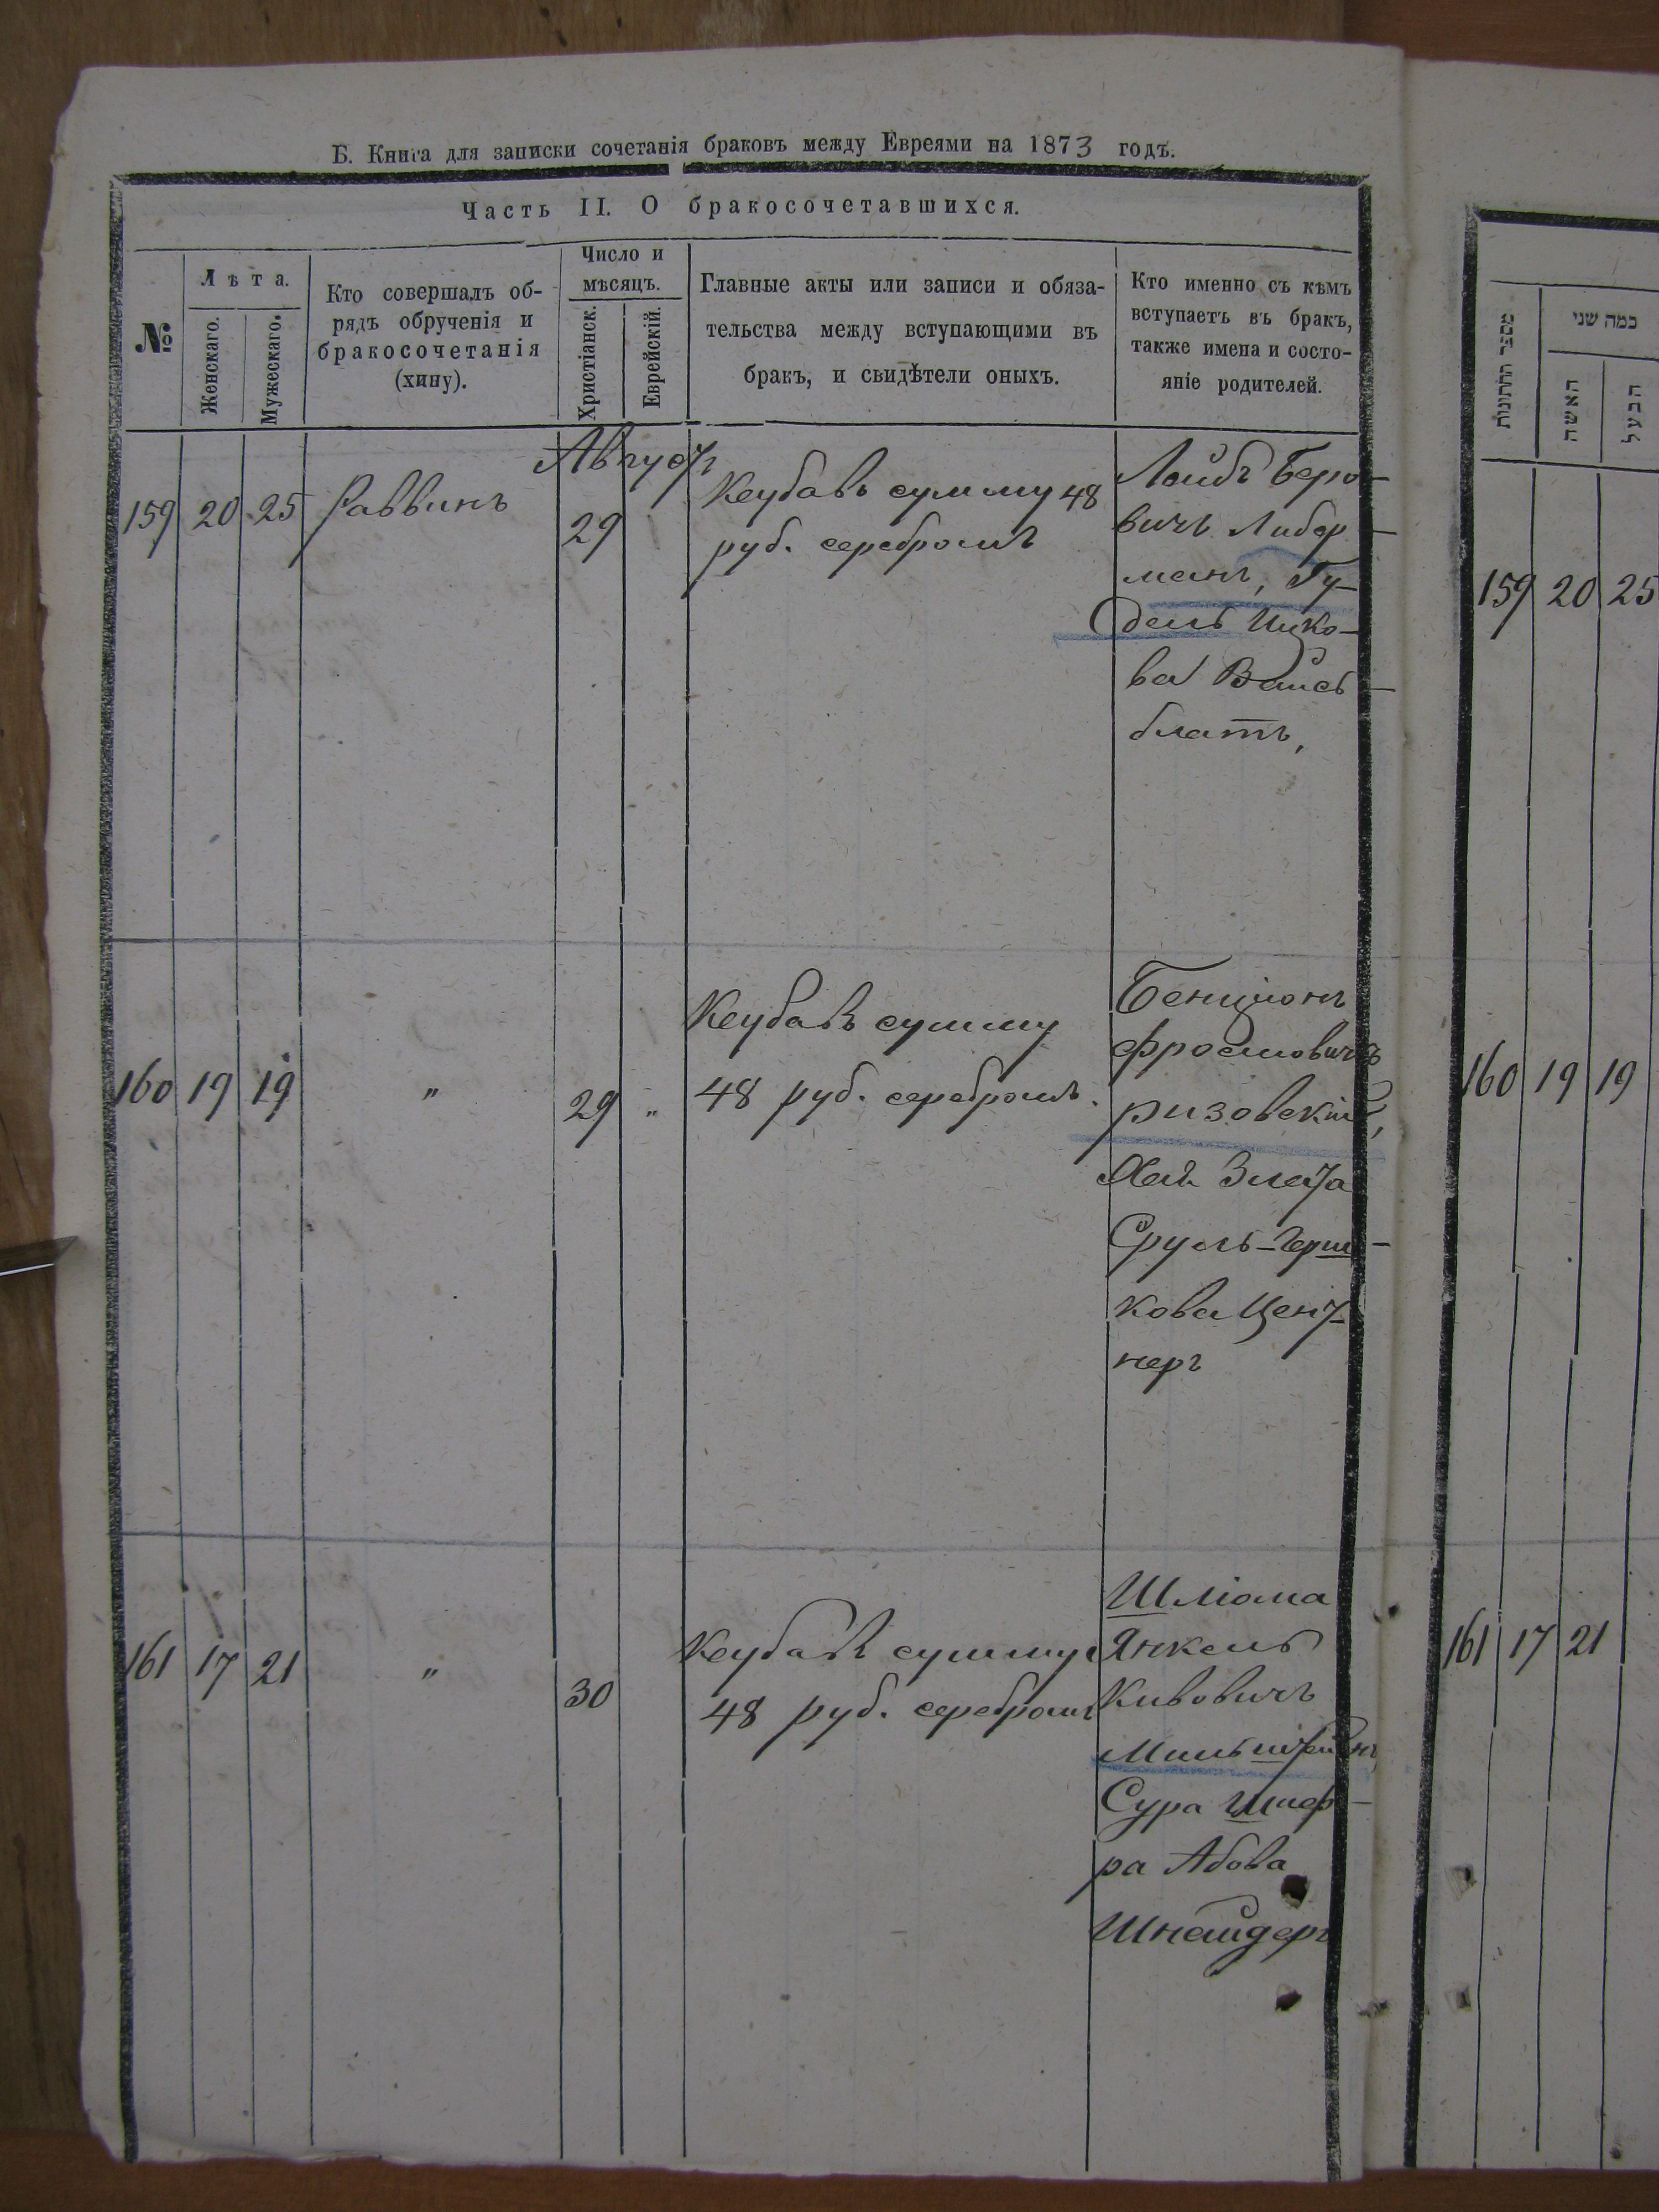 Б. Книга для записки сочетанія браковъ между Евреями на 1873 годъ.
Часть II. О бракосочетавшихся.
№
Лѣта.
Женскаго.
Мужескаго.
Кто совершалъ об-
рядъ обрученія и
бракосочетанія
(хипу).
Число и
мѣсяцъ.
Христіанск.
Еврейскій.
Главные акты или записи и обяза-
тельства между вступающими въ
бракъ, и свидѣтели оныхъ.
Кто именно съ кѣмъ
вступаетъ въ бракъ,
также имена и состо-
яніе родителей.
Август
159 20 25 Раввинъ 29
Кеубавъ сумму 48
руб. серебромъ
Лейбъ Беро-
вичъ Либер-
манъ, Гу-
дель Ицко-
ва Вайсъ-
блатъ,
160 19 19 " 29 "
Кеубавъ сумму
48 руб. серебромъ.
Бенціонъ
Фроемовичъ
ризовскій,
Хая Злата
Сруль-Герш-
кова Цент-
неръ
161 17 21 " 30
Кеубавъ сумму
48 руб. серебромъ
Шліома
Янкель
Кивовичъ
Мильштейнъ,
Сура Шиф-
ра Абова
Шнайдеръ
מספר החתונות
כמה שני
האשה
הבעל
159 20 25
160 19 19
161 17 21